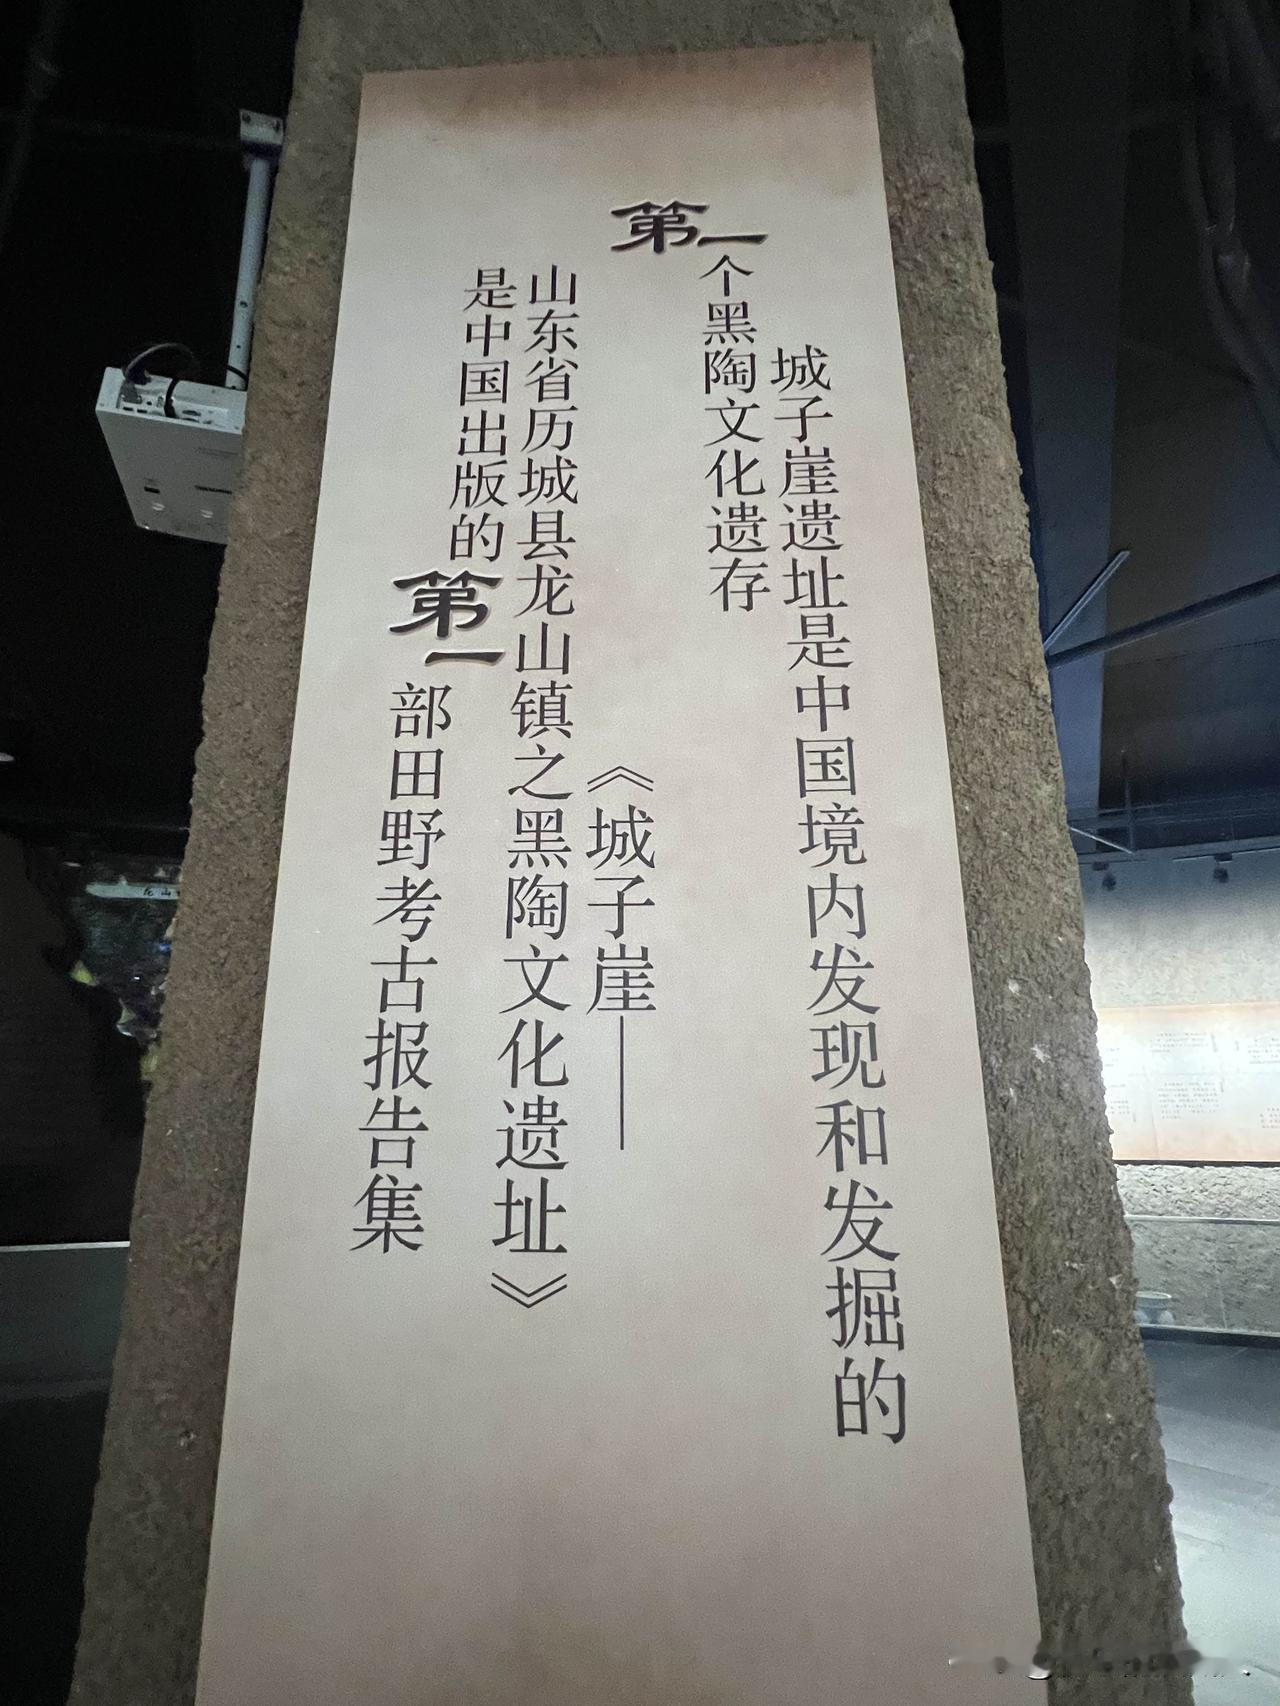 城子崖遗址是中国境内发现和发掘的
第一个黑陶文化遗存
《城子崖——
山东省历城县龙山镇之黑陶文化遗址》
是中国出版的第一部田野考古报告集
龙山